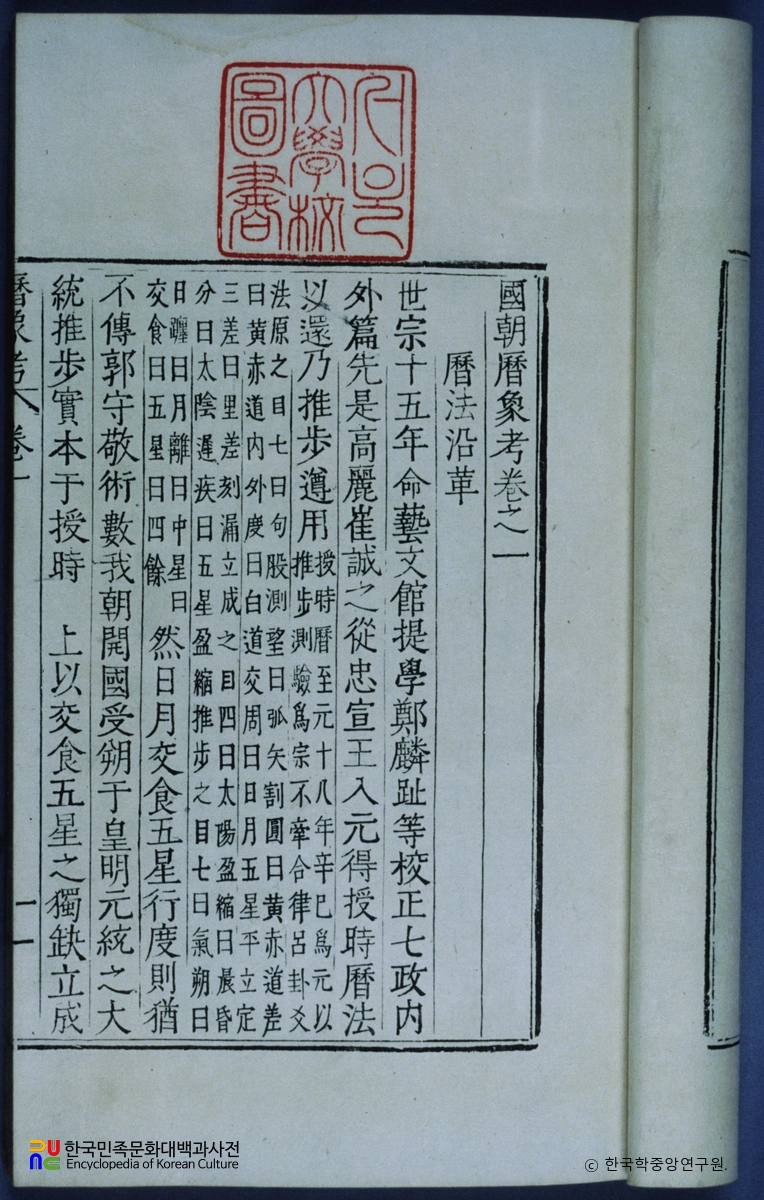 서울
大學校
圖書
國朝曆象考卷之一
曆法沿革
世宗十五年命藝文館提學鄭麟趾等校正七政內
外篇先是高麗崔誠之從忠宣王入元得授時曆法
以還乃推步遵用
授時曆至元十八年辛巳爲元以
推步測驗爲宗不牽合律呂卦爻
法原之目七曰句股測望曰弧矢割圓曰黃赤道差
曰黃赤道內外度曰白道交周曰日月五星平立定
三差曰里差刻漏立成之目四曰太陽盈縮曰晨昏
分曰太陰遲疾曰五星盈縮推步之目七曰氣朔曰
日躔曰月離曰中星曰
交食曰五星曰四餘
然日月交食五星行度則猶
不傳郭守敬術數我朝開國受朔于皇明元統之大
統推步實本于授時 上以交食五星之獨缺立成
曆象考 卷一
一
한국민족문화대백과사전
Encyclopedia of Korean Culture
ⓒ 한국학중앙연구원.